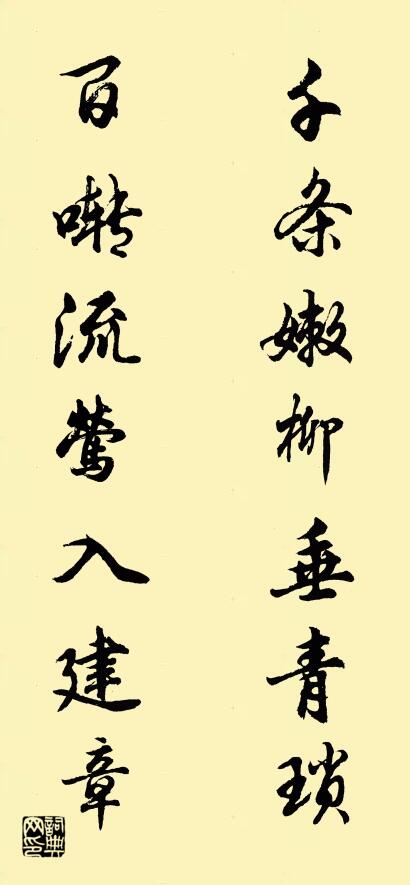 千条嫩柳垂青琐
百啭流莺入建章
词典网印